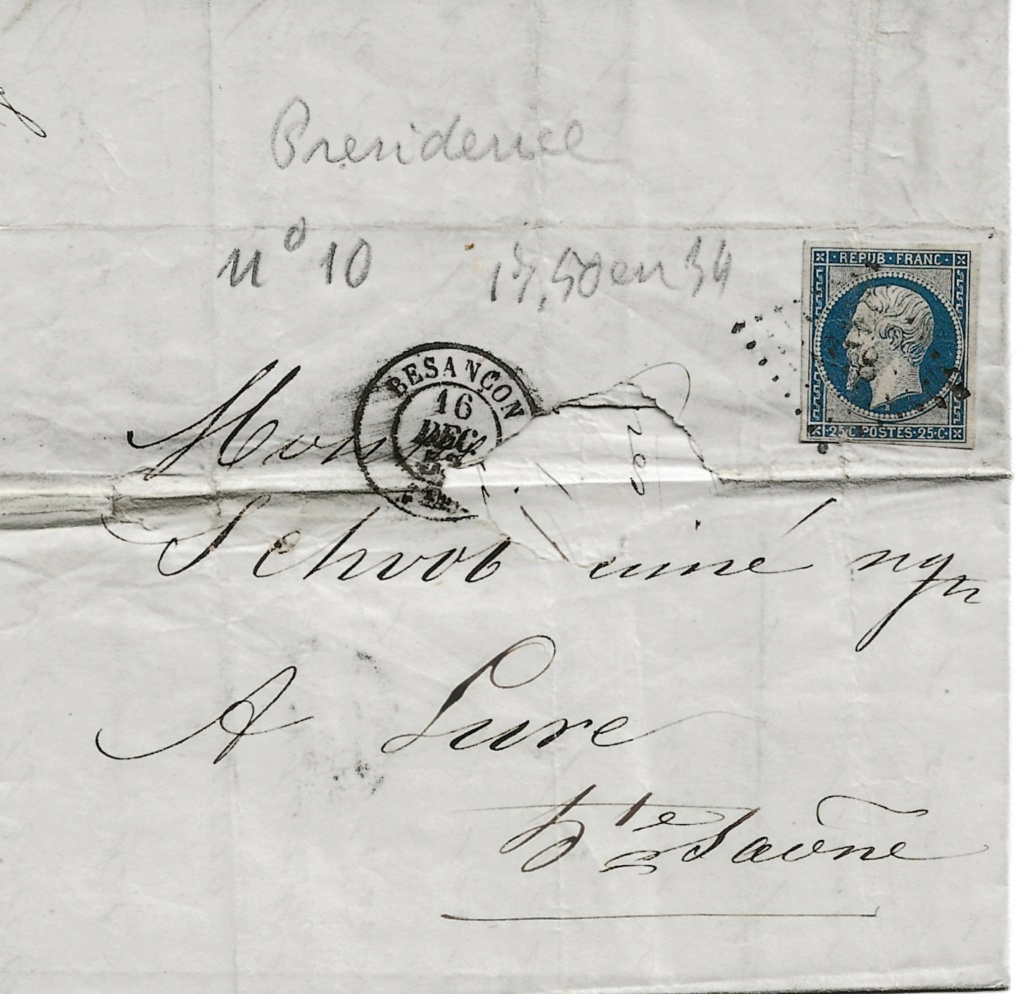 Presidence
n° 10 17,50 en 34
REPUB·FRANC·
25·C·POSTES·25·C·
BESANCON
16
DEC
Mons
Schvob ainé ngn
A Lure
Hte Saône